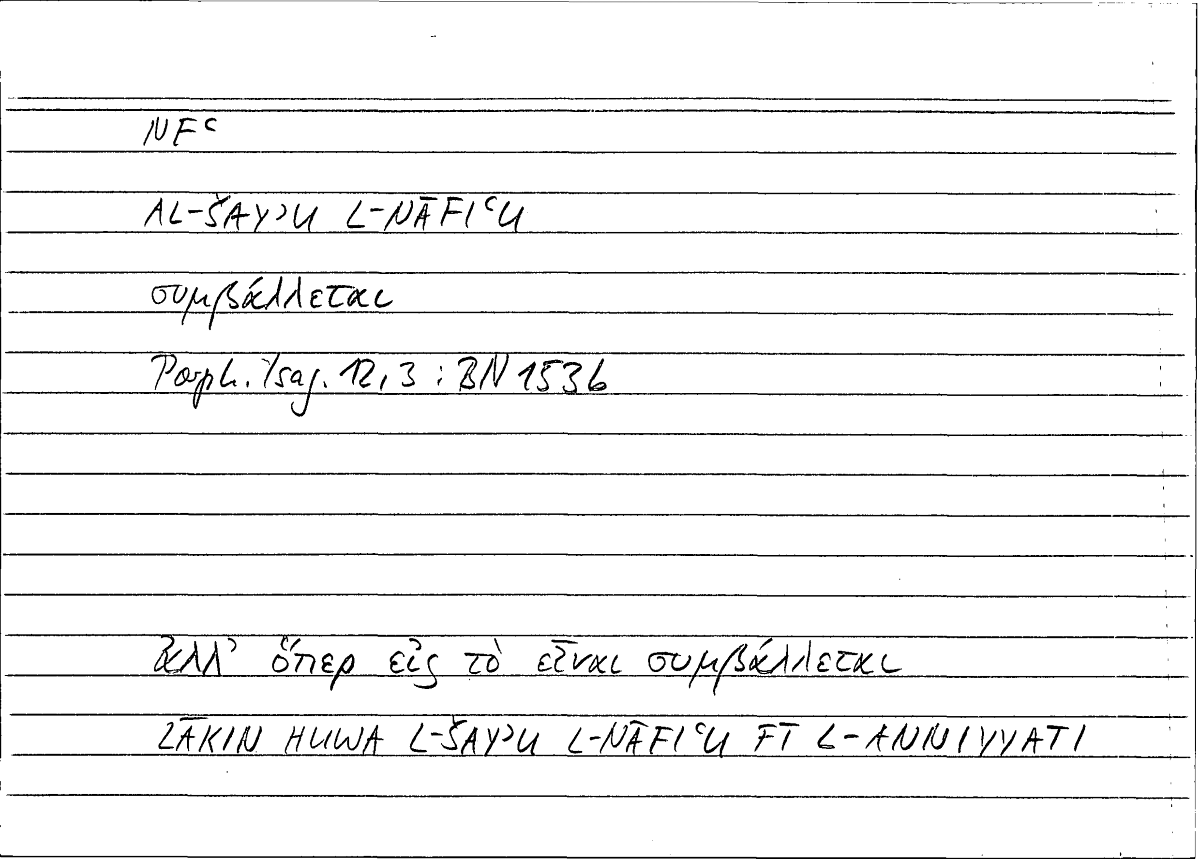 NFʿ
AL-ŠAYʾU L-NĀFIʿU
συμβάλλεται
Porph. Isag. 12,3 : BN 153b
ἀλλ᾿ ὅπερ εἰς τὸ εἶναι συμβάλλεται
LĀKIN HUWA L-ŠAYʾU L-NĀFIʿU FĪ L-ANNIYYATI